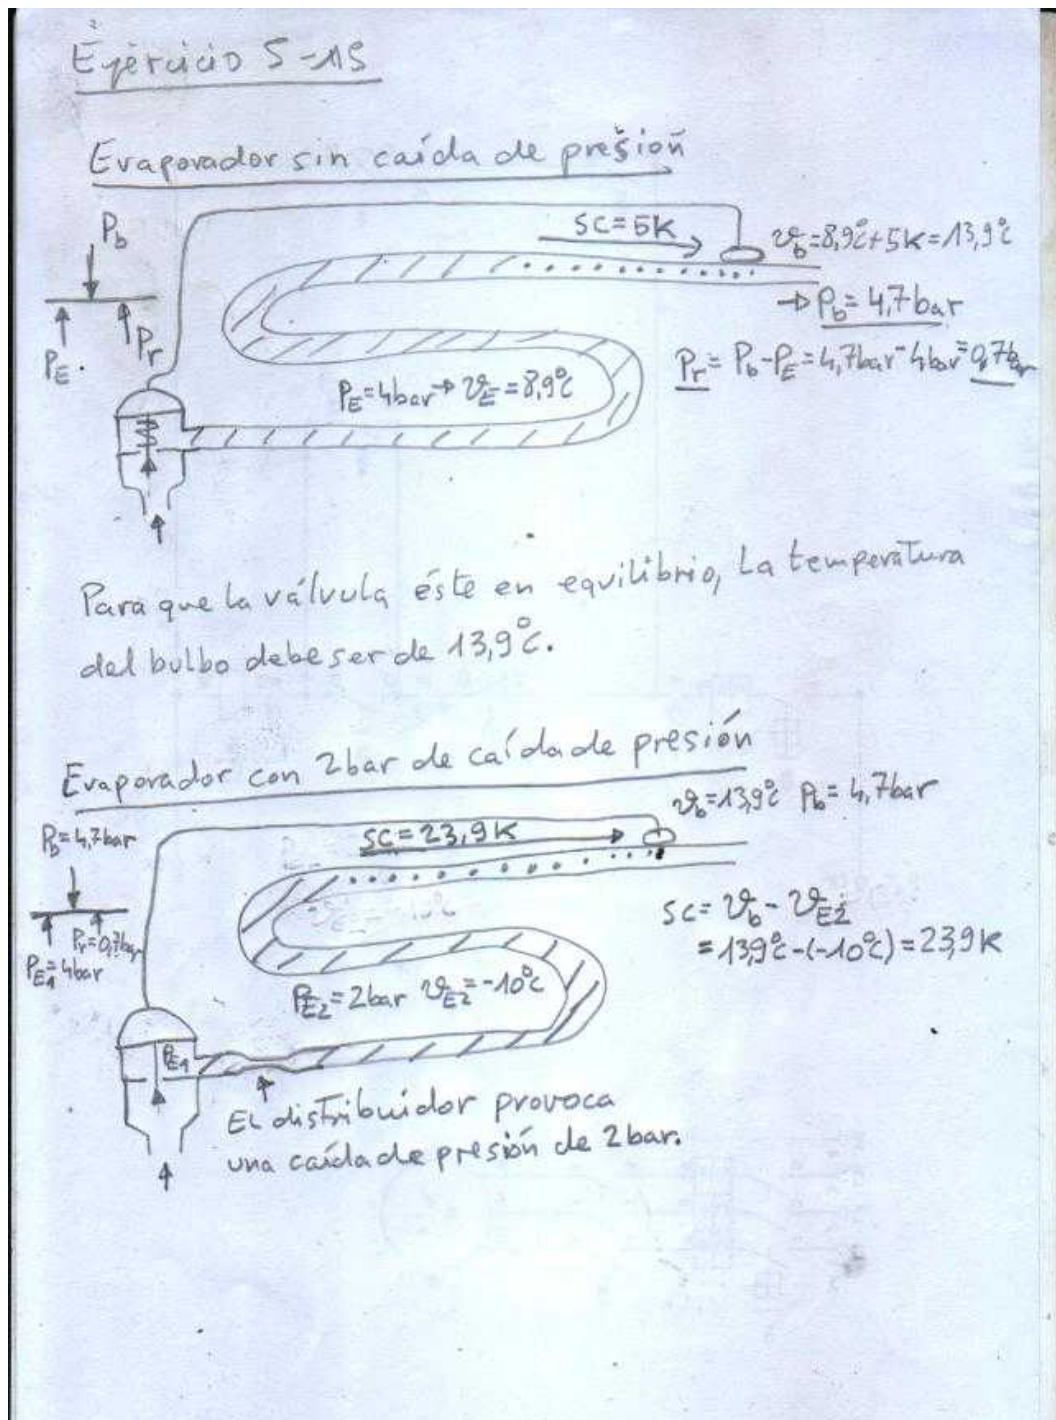 Ejercicio 5-15
Evaporador sin caída de presión
Pb
SC=5K
ϑb=8,9°C+5K=13,9°C
→ Pb=4,7bar
PE
Pr
Pr=Pb-PE=4,7bar-4bar=0,7bar
PE=4bar→ϑE=8,9°C
Para que la válvula éste en equilibrio, La temperatura
del bulbo debe ser de 13,9°C.
Evaporador con 2bar de caída de presión
ϑb=13,9°C Pb=4,7bar
Pb=4,7bar
SC=23,9K
Pr=0,7bar
PE1=4bar
SC=ϑb-ϑE2
=13,9°C-(-10°C)=23,9K
PE2=2bar ϑE2=-10°C
PE1
EL distribuidor provoca
una caída de presión de 2bar.